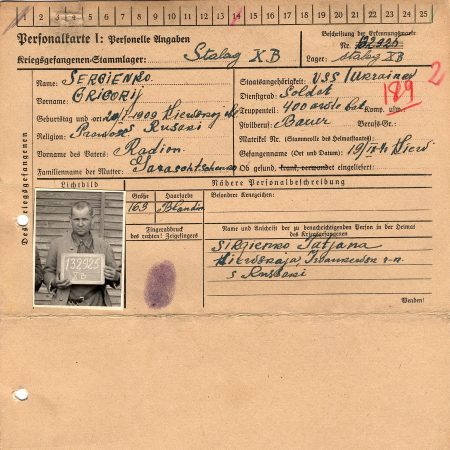 1 2 3 4 5 6 7 8 9 10 11 12 13 14 15 16 17 18 19 20 21 22 23 24 25
Personalkarte I: Personelle Angaben
Kriegsgefangenen-Stammlager: Stalag XB
Beschriftung der Erkennungsmarke
Nr. 132925
Lager: Stalag XB
Des Kriegsgefangenen
Name: SERGIENKO
Vorname: GRIGORIJ
Geburtstag und -ort: 1909
Religion: Prawosl. Russaki
Vorname des Vaters: Radion
Familienname der Mutter: Taraschtschenko
Staatsangehörigkeit: USS/Ukrainer
Dienstgrad: Soldat
Truppenteil: 400 Komp. usw.:
Zivilberuf: Bauer Berufs-Gr.:
Matrikel Nr. (Stammrolle des Heimatstaates):
Gefangennahme (Ort und Datum): 19/IX.41 Kiew
Ob gesund, krank, verwundet eingeliefert:
189
2
Lichtbild
Nähere Personalbeschreibung
Größe
163
Haarfarbe
Blondin
Besondere Kennzeichen:
Fingerabdruck
des rechten! Zeigefingers
Name und Anschrift der zu benachrichtigenden Person in der Heimat
des Kriegsgefangenen
SIRZIENKO Tatjana
Kiewskaja, Iwankowski r-n.
s Russaki
Wenden!
132925
XB